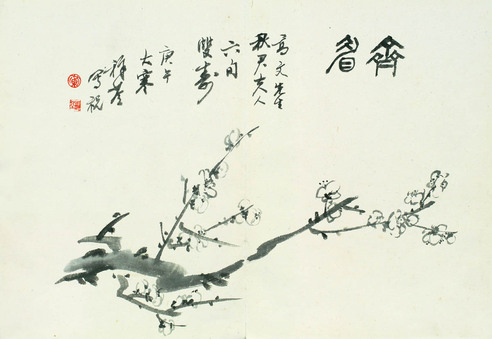 齊眉
高文先生
秋君夫人
六旬
雙壽
庚午
大寒
寫祝